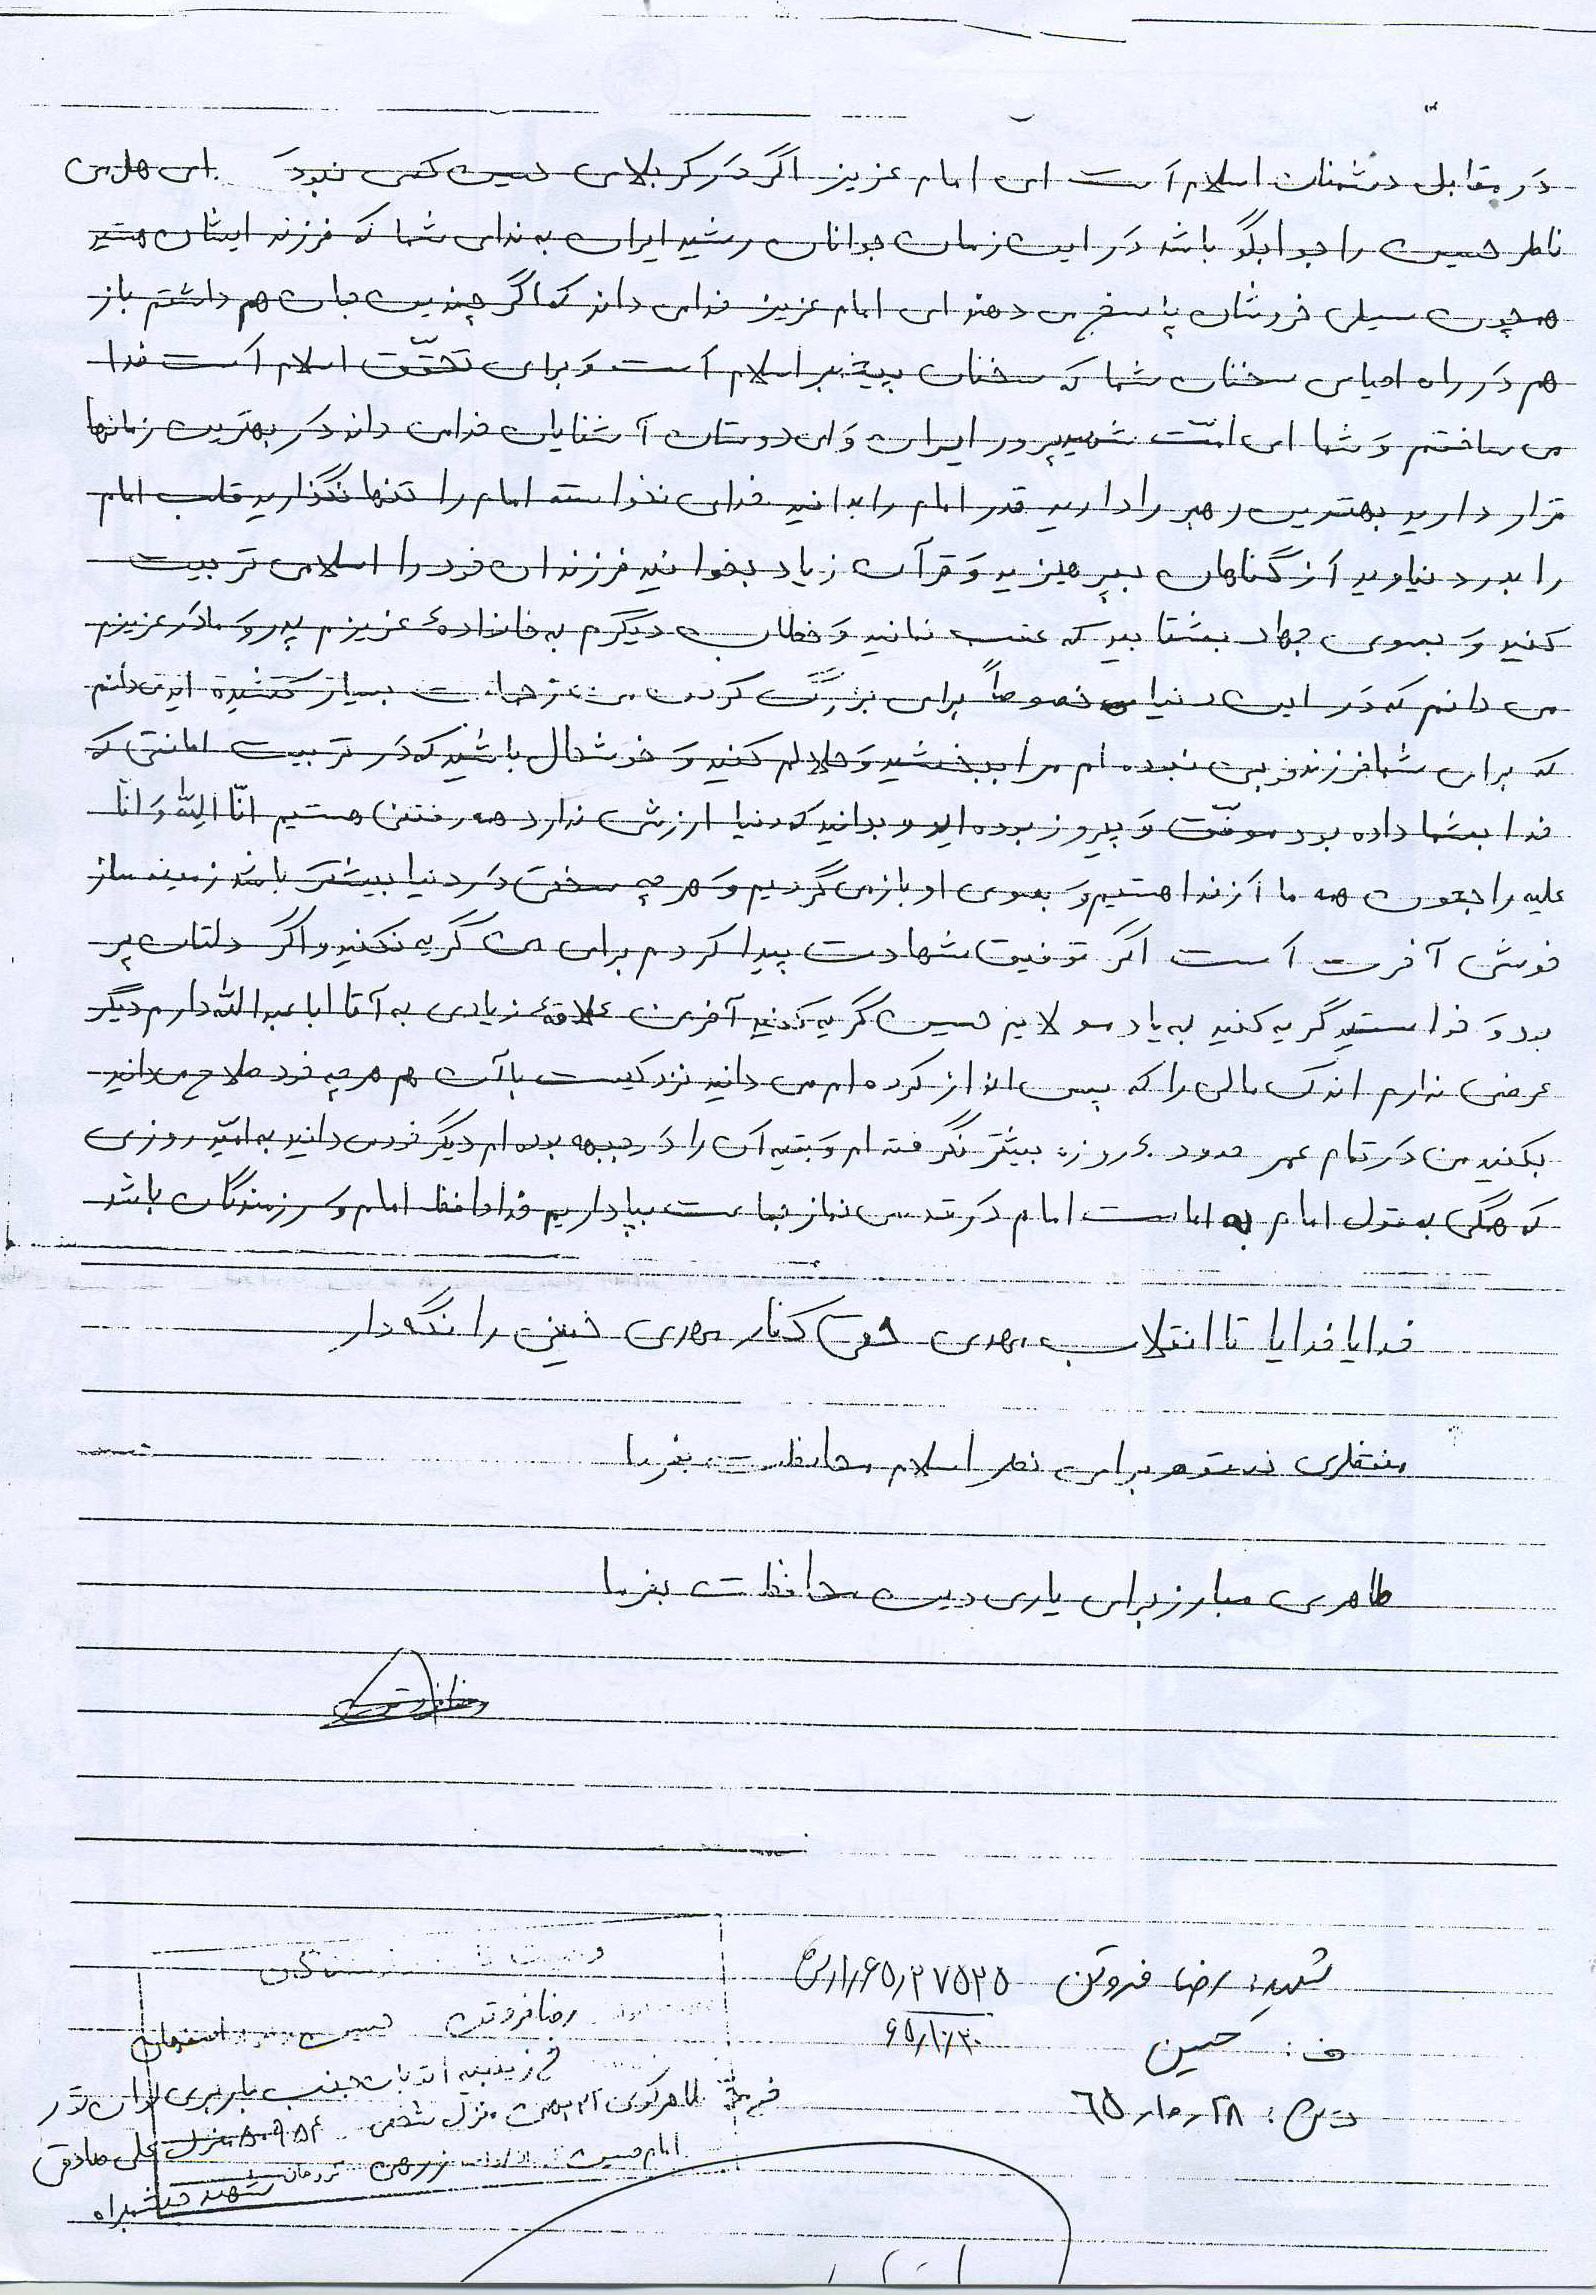 در مقابل دشمنان اسلام است ای امام عزیز اگر در کربلای حسین کسی نبود ای هل من
ناصر حسین را جوابگو باشد در این زمان جوانان رشید ایران به ندای شما که فرزند ایشان هستید
همچون سیلی خروشان پاسخ می دهند ای امام عزیز خدا می داند که اگر چندین جان هم داشتم باز
هم در راه احیای سخنان شما که سخنان پیغمبر اسلام است و برای تحقّق اسلام است فدا
می ساختم و شما ای امّت شهیدپرور ایران و ای دوستان آشنایان خدا می داند در بهترین زمانها
قرار دارید بهترین رهبر را دارید قدر امام را بدانید خدای نخواسته امام را تنها نگذارید قلب امام
را بدرد نیاورید از گناهان بپرهیزید و قرآن زیاد بخوانید فرزندان خود را اسلامی تربیت
کنید و بسوی جهاد بشتابید که عقب نمانید و خطاب دیگرم به خانوادهٔ عزیزم پدر و مادر عزیزم
می دانم که در این دنیا خصوصاً برای بزرگ کردن من زحمات بسیار کشیده اید می دانم
که برای شما فرزند خوبی نبوده ام مرا ببخشید و حلالم کنید و خوشحال باشید که در تربیت امانتی که
خدا بشما داده بود موفّق و پیروز بوده اید و بدانید که دنیا ارزشی ندارد همه رفتنی هستیم انّا لله و انّا
علیه راجعون همه ما از خدا هستیم و بسوی او باز می گردیم و هر چه سختی در دنیا بیشتر باشد زمینه ساز
خوشی آخرت است اگر توفیق شهادت پیدا کردم برای من گریه نکنید و اگر دلتان پر
بود و خواستید گریه کنید به یاد مولایم حسین گریه کنید آخر من علاقهٔ زیادی به آقا اباعبدالله دارم دیگر
عرضی ندارم اندک مالی را که پس انداز کرده ام می دانید نزد کیست با آن هم هر چه خود صلاح می دانید
بکنید من در تمام عمر حدود ۶۰ روزه بیشتر نگرفته ام و بقیه آن را در جبهه بوده ام دیگر خود می دانید به امّید روزی
که همگی به قول امام به امامت امام در قدس نماز جماعت بپا داریم خدا حافظ امام و رزمندگان باشد
خدایا خدایا تا انقلاب مهدی حتی کنار مهدی خمینی را نگه دار
منتظری نستوه برای نصر اسلام محافظت بفرما
طاهری مبارز برای یاری دین محافظت بفرما
شهید: رضا فروتن
ف: حسین
۶۵/۱۰/۲۰
ت ش: ۲۸/۱۰/۶۵
رضا فروتن حسین اصفهان
منزل شخصی
منزل علی صادقی
امام حسین